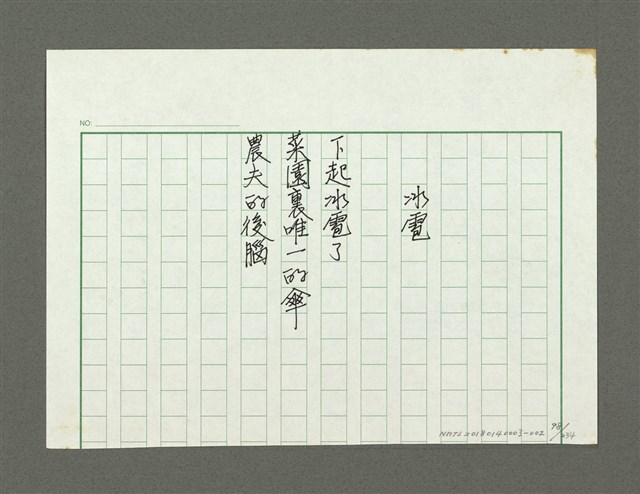 冰雹
下起冰雹了
菜園裏唯一的傘
農夫的後腦
NO:
NMTL20180140003-002
98/234